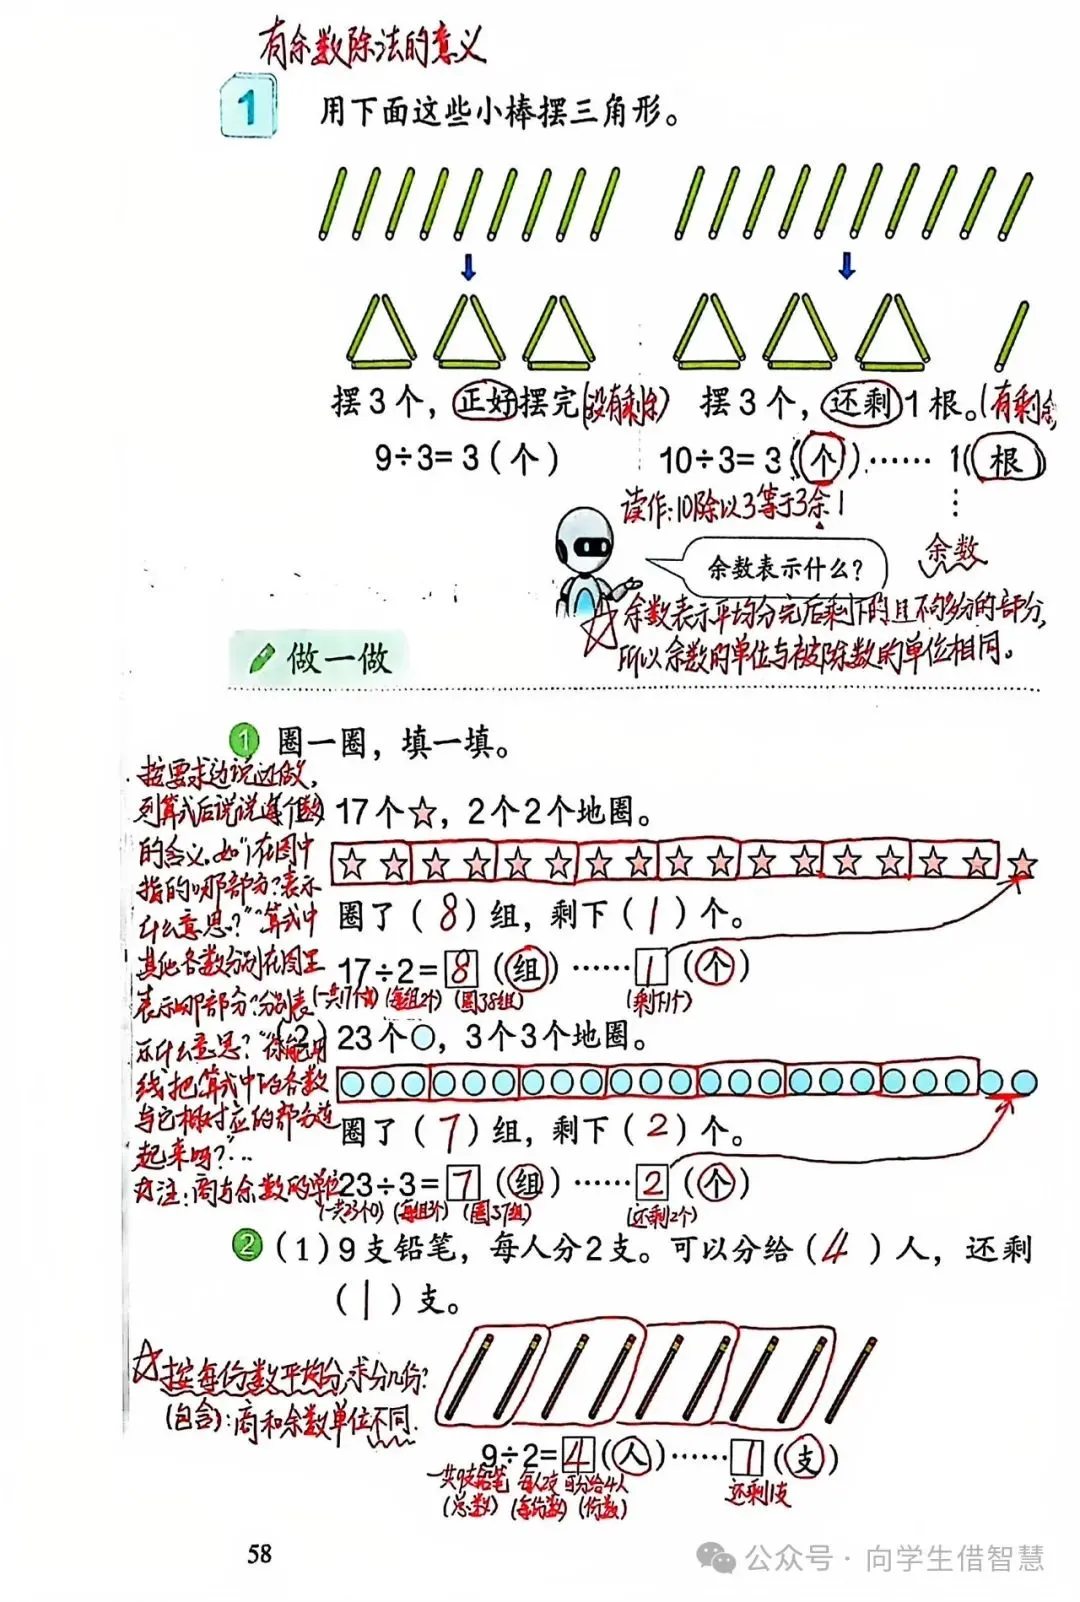 有余数除法的意义
1 用下面这些小棒摆三角形。
摆3个，正好摆完(没有剩余) 摆3个，还剩1根。(有剩余
9÷3=3(个) 10÷3=3(个)……1(根)
读作:10除以3等于3余1
余数
余数表示什么？
余数表示平均分完后剩下的且不够分的部分,
所以余数的单位与被除数的单位相同。
做一做
1 圈一圈，填一填。
按要求边说边做,
列算式后说说每个数
的含义。如"1在图中
指的哪部分?表示
什么意思?""算式中
其他各数分别在图里
表示哪部分?分别表
示什么意思?""你能用
线把算式中的各数
与它相对应的部分连
起来吗?"…
注:商与余数的单位
17个☆，2个2个地圈。
圈了(8)组，剩下(1)个。
17÷2=8(组)……1(个)
(一共17个) (每组2个) (圈了8组) (剩下1个)
(2) 23个○，3个3个地圈。
圈了(7)组，剩下(2)个。
23÷3=7(组)……2(个)
(一共23个) (每组3个) (圈了7组) (还剩2个)
2 (1)9支铅笔，每人分2支。可以分给(4)人，还剩
(1)支。
☆按每份数平均分,求分几份?
(包含):商和余数单位不同.
9÷2=4(人)……1(支)
一共9支铅笔 每人2支 可分给4人 还剩1支
(总数) (每份数) (份数)
58
公众号·向学生借智慧